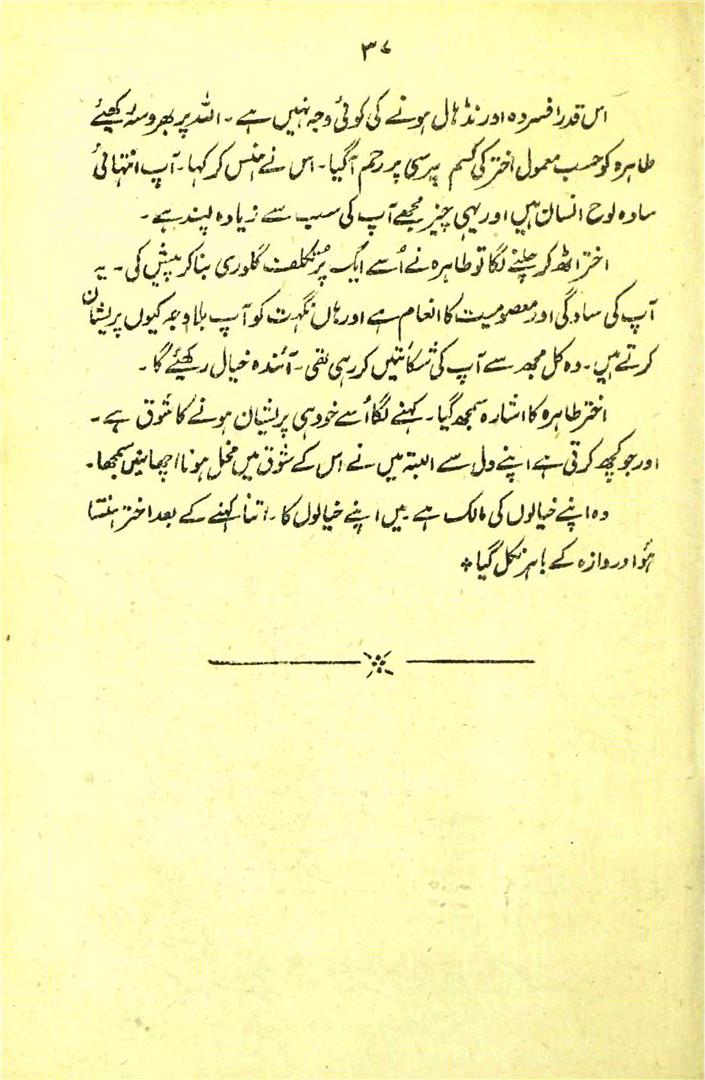 ۳۷
اس قدر افسردہ اور نڈھال ہونے کی کوئی وجہ نہیں ہے۔ اللہ پر بھروسہ رکھئے
طاہرہ کو حسب معمول اختر کی کسم پرسی پر رحم آگیا۔ اس نے ہنس کر کہا۔ آپ انتہائی
سادہ لوح انسان ہیں اور یہی چیز مجھے آپ کی سب سے زیادہ پسند ہے۔
اختر اٹھ کر چلنے لگا تو طاہرہ نے اُسے ایک پُر تکلف گلوری بنا کر پیش کی۔ یہ
آپ کی سادگی اور معصومیت کا انعام ہے اور ہاں نگہت کو آپ بلاوجہ کیوں پریشان
کرتے ہیں۔ وہ کل مجھ سے آپ کی شکائتیں کر رہی تھی۔ آئندہ خیال رکھئے گا۔
اختر طاہرہ کا اشارہ سمجھ گیا۔ کہنے لگا اُسے خود ہی پریشان ہونے کا شوق ہے۔
اور جو کچھ کرتی ہے اپنے دل سے البتہ میں نے اس کے شوق میں مخل ہونا اچھا نہیں سمجھا۔
وہ اپنے خیالوں کی مالک ہے میں اپنے خیالوں کا۔ اتنا کہنے کے بعد اختر ہنستا
ہُوا دروازہ کے باہر نکل گیا٭